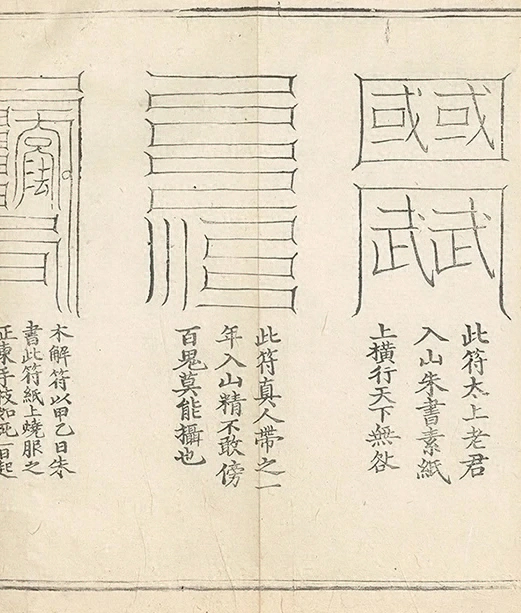 國 國
武 武
此符太上老君
入山朱書素紙
上橫行天下無咎
此符真人帶之一
年入山精不敢傍
百鬼莫能攝也
木解符以甲乙日朱
書此符紙上燒服之